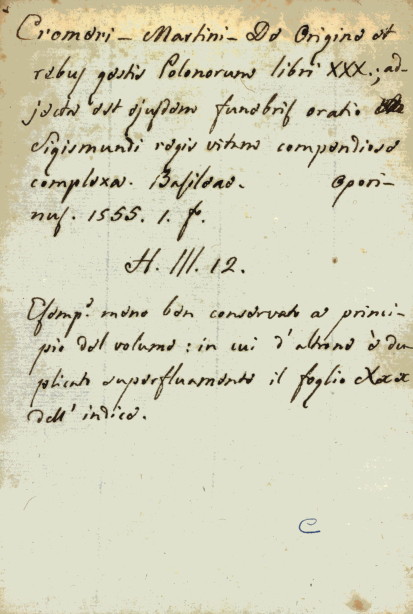 Cromeri - Martini - De Origine et
rebus gestis Polonorum libri XXX.; ad-
jecta est ejusdem funebris oratio
Sigismundi regis vitam compendiose
complexa. Basileae. Opori-
nus. 1555. 1. f.
H. III. 12.
Esemp.e meno ben conservato a princi-
pio del volume: in cui d'altrone è du-
plicato superfluamente il foglio Xxx
dell' indice.
C